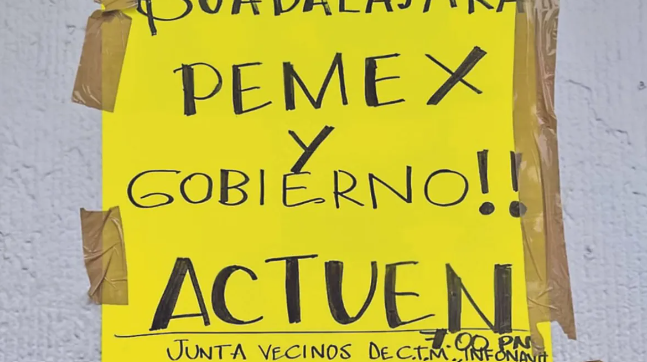 GUADALAJARA
PEMEX
Y
GOBIERNO!!
ACTUEN
7:00 PM
JUNTA VECINOS DE C.T.M. INFONAVIT